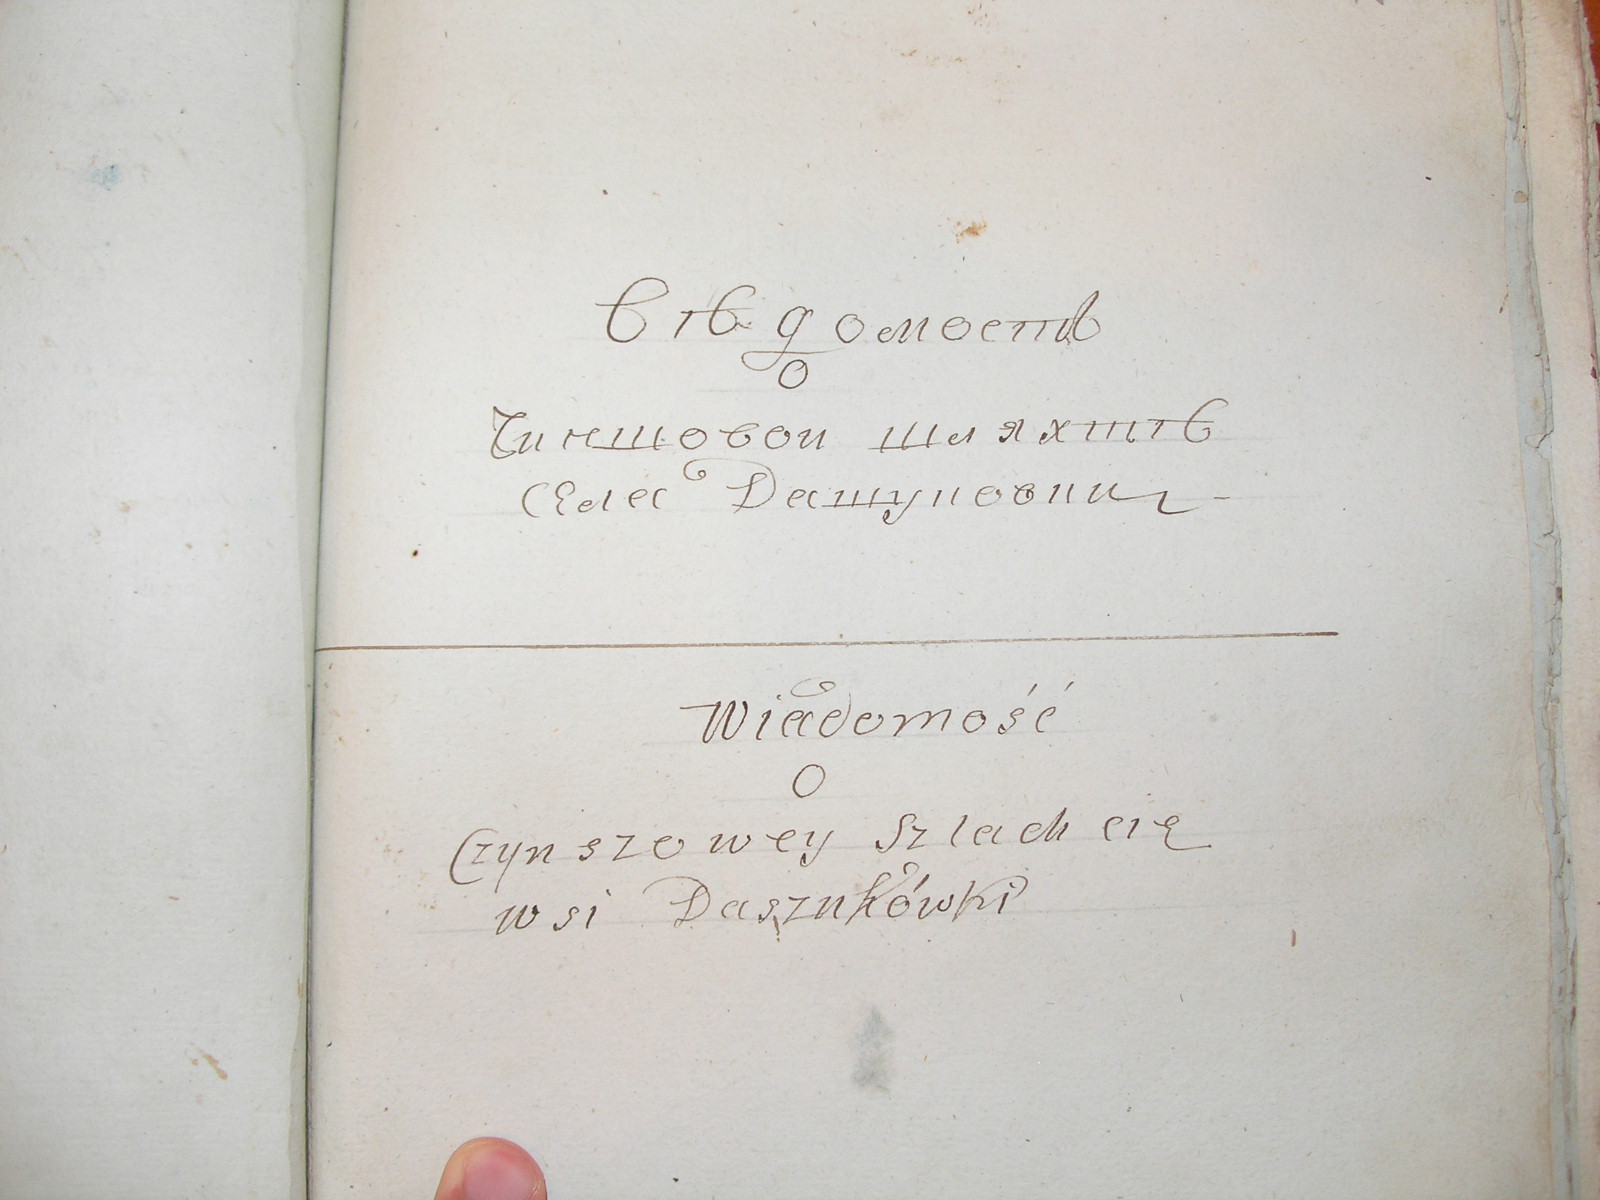 Вѣдомость
о
Чиншовои шляхтѣ
Села Дашуковки
Wiadomość
O
Czynszowey Szlachcie
wsi Daszukówki